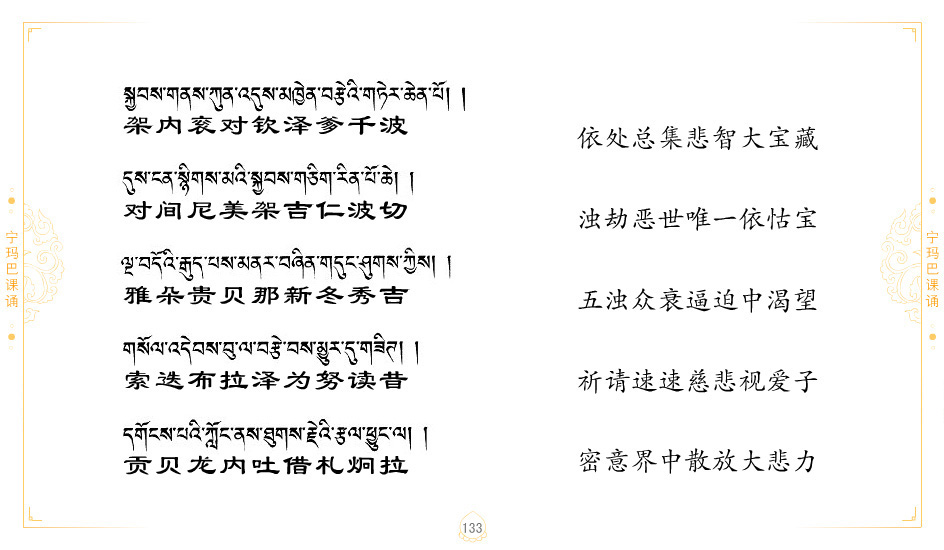 སྐྱབས་གནས་ཀུན་འདུས་མཁྱེན་བརྩེའི་གཏེར་ཆེན་པོ། །
架内衮对钦泽爹千波
依处总集悲智大宝藏
དུས་ངན་སྙིགས་མའི་སྐྱབས་གཅིག་རིན་པོ་ཆེ། །
对间尼美架吉仁波切
浊劫恶世唯一依怙宝
ལྔ་བདོའི་རྒུད་པས་མནར་བཞིན་གདུང་ཤུགས་ཀྱིས། །
雅朵贵贝那新冬秀吉
五浊众衰逼迫中渴望
གསོལ་འདེབས་བུ་ལ་བརྩེ་བས་མྱུར་དུ་གཟིགས། །
索迭布拉泽为努读昔
祈请速速慈悲视爱子
དགོངས་པའི་ཀློང་ནས་ཐུགས་རྗེའི་རྩལ་ཕྱུང་ལ། །
贡贝龙内吐借札炯拉
密意界中散放大悲力
宁玛巴课诵
宁玛巴课诵
133